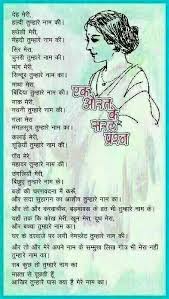 देह मेरी,
हल्दी तुम्हारे नाम की।
हथेली मेरी,
मेहंदी तुम्हारे नाम की।
सिर मेरा,
चुनरी तुम्हारे नाम की।
मांग मेरी,
सिन्दूर तुम्हारे नाम का।
माथा मेरा,
बिंदिया तुम्हारे नाम की।
नाक मेरी,
नथनी तुम्हारे नाम की।
गला मेरा,
मंगलसूत्र तुम्हारे नाम का।
कलाई मेरी,
चूड़ियां तुम्हारे नाम की।
पाँव मेरे,
महावर तुम्हारे नाम की।
उंगलियाँ मेरी,
बिछुए तुम्हारे नाम के।
बड़ों की चरण वंदना मैं करूँ,
और सदा सुहागन का आशीष तुम्हारे नाम का।
और तो और
के व्रत भी तुम्हारे नाम के।
यहाँ तक कि कोख मेरी, खून मेरा, दूध मेरा,
और बच्चा तुम्हारे नाम का।
घर के दरवाज़े पर लगी नेमप्लेट तुम्हारे नाम की।
और तो और मेरे अपने नाम के सम्मुख लिखा गोत्र भी मेरा नहीं
तुम्हारे नाम का।
सब कुछ तो तुम्हारे नाम का
आखिर तुम्हारे पास क्या है मेरे नाम का?
एक
औरत
के
प्रश्न